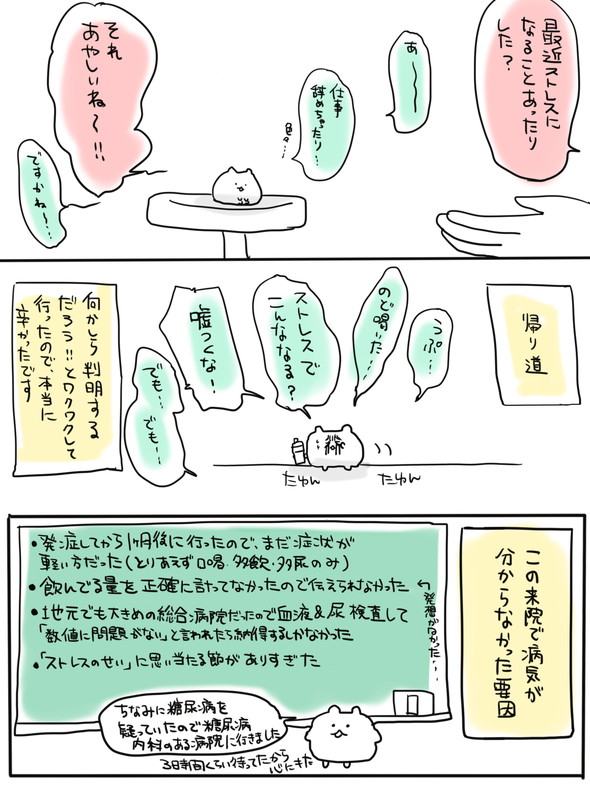 最近ストレスに
なることあったり
した？
あ〜〜〜
仕事
辞めちゃったり…
色々…
それ
あやしいね〜!!
ですかね〜…
帰り道
うぷ…
のど渇いた…
ストレスで
こんななる？
嘘つくな！
でも…でも…
たゆん
たゆん
何かしら判明する
だろう!!とワクワクして
行ったので、本当に
辛かったです
この来院で病気が
分からなかった要因
•発症してから1ヶ月後に行ったので、まだ症状が
軽い方だった(とりあえず口喝・多飲・多尿のみ)
•飲んでる量を正確に計ってなかったので伝えられなかった
←発想がなかった…
•地元でも大きめの総合病院だったので血液&尿検査して
「数値に問題がない」と言われたら納得するしかなかった
•「ストレスのせい」に思い当たる節がありすぎた
ちなみに糖尿病を
疑っていたので糖尿病
内科のある病院に行きました
3時間くらい待ってたから
心にキた